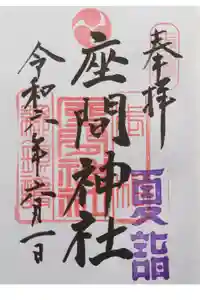 奉拝
座間神社
夏詣
令和六年六月一日